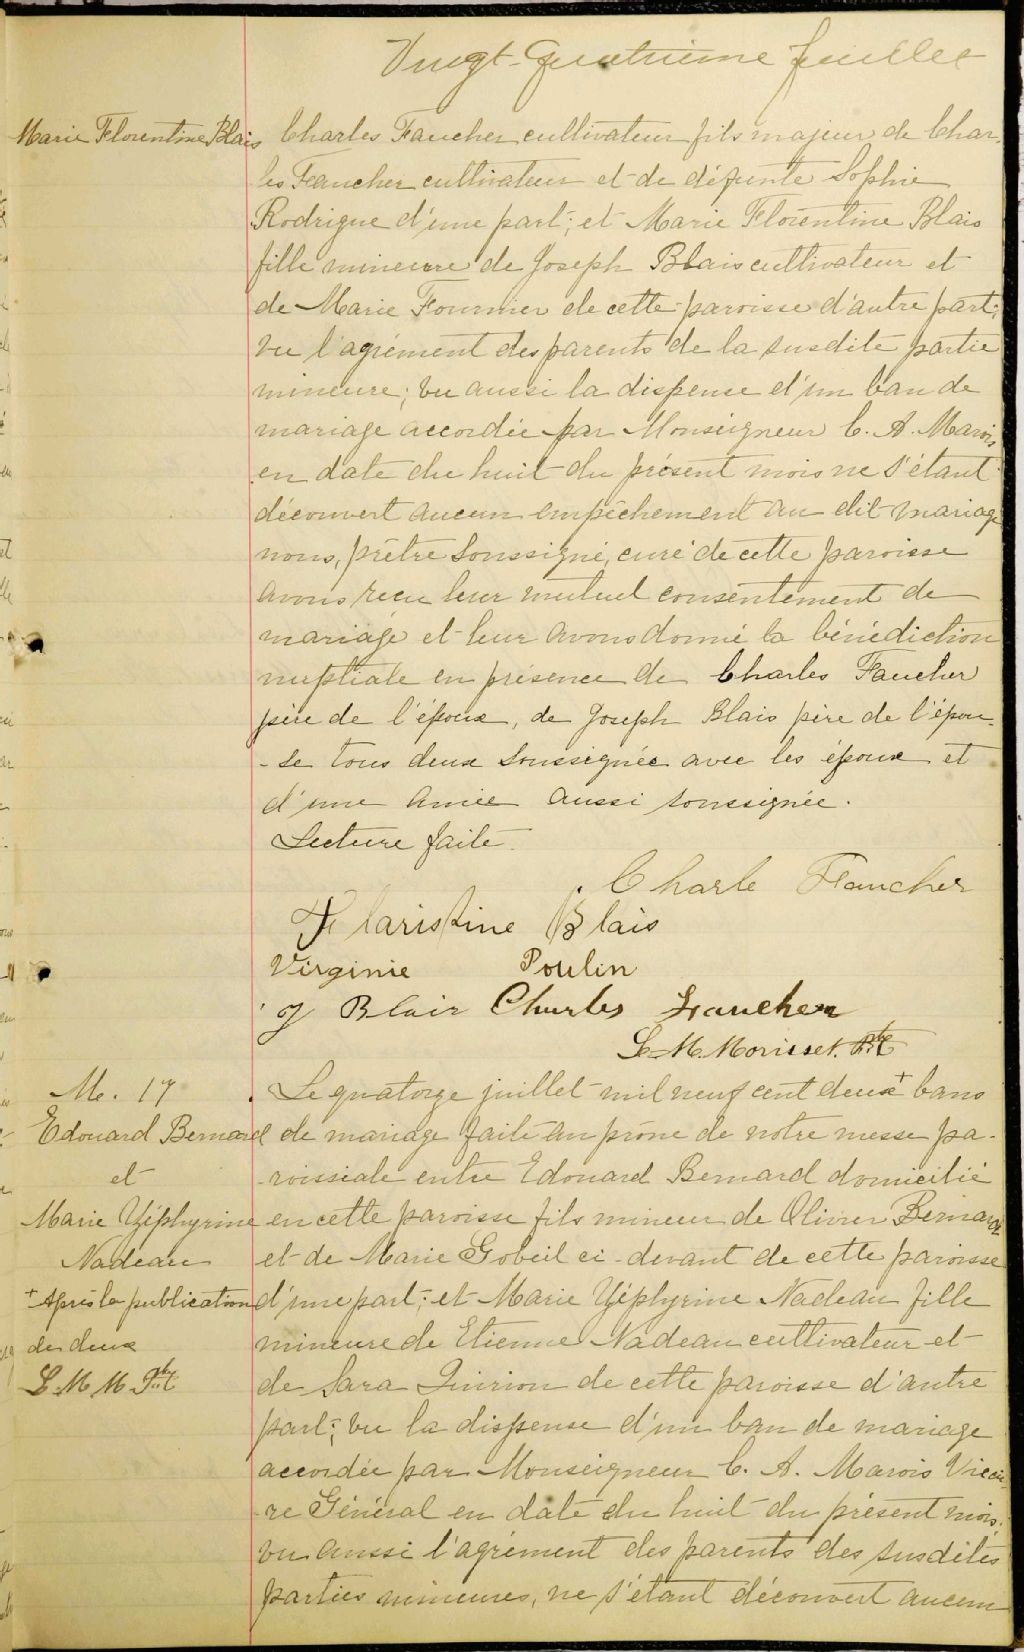 Vingt-quatrième feuillet
Marie Florentine Blais
Charles Faucher cultivateur fils majeur de Char-
les Faucher cultivateur et de défunte Sophie
Rodrigue d'une part; et Marie Florentine Blais
fille mineure de Joseph Blais cultivateur et
de Marie Fournier de cette paroisse d'autre part;
vu l'agrément des parents de la susdite partie
mineure; vu aussi la dispense d'un ban de
mariage accordée par Monseigneur C. A. Marois
en date du huit du présent mois ne s'étant
découvert aucun empêchement au dit mariage
nous, prêtre soussigné, curé de cette paroisse
avons reçu leur mutuel consentement de
mariage et leur avons donné la bénédiction
nuptiale en présence de Charles Faucher
père de l'époux, de Joseph Blais père de l'épou-
-se tous deux soussignés avec les époux et
d'une amie aussi soussignée.
Lecture faite.
Charle Faucher
Flaristine Blais
Virginie Poulin
J Blair Charles Faucher
L. M. Morisset. Ptre
M. 17
Edouard Bernard
et
Marie Zéphyrine
Nadeau
+ Après la publication
de deux
L. M. M. Ptre
Le quatorze juillet mil neuf cent deux + bans
de mariage faite au prône de notre messe pa-
roissiale entre Edouard Bernard domicilié
en cette paroisse fils mineur de Olivier Bernard
et de Marie Gobeil ci-devant de cette paroisse
d'une part; et Marie Zéphyrine Nadeau fille
mineure de Etienne Nadeau cultivateur et
de Sara Quirion de cette paroisse d'autre
part; vu la dispense d'un ban de mariage
accordée par Monseigneur C. A. Marois Vicai-
re Général en date du huit du présent mois;
vu aussi l'agrément des parents des susdites
parties mineures, ne s'étant découvert aucun